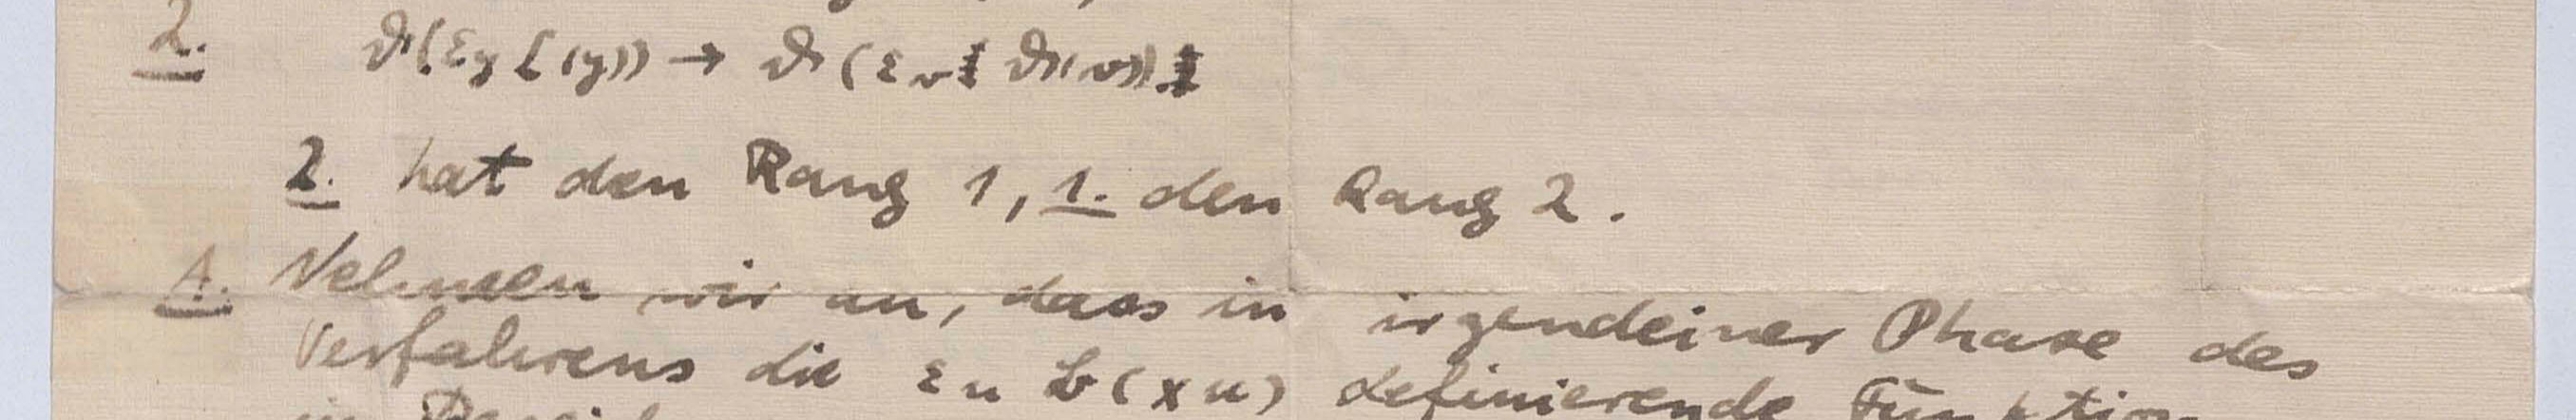 2. ϑ(εy ζ(y)) → ϑ(εv ϑ(v))
2. hat den Rang 1, 1. den Rang 2.
A. Nehmen wir an, dass in irgendeiner Phase des
Verfahrens die εu b(xu) definierende Funktion